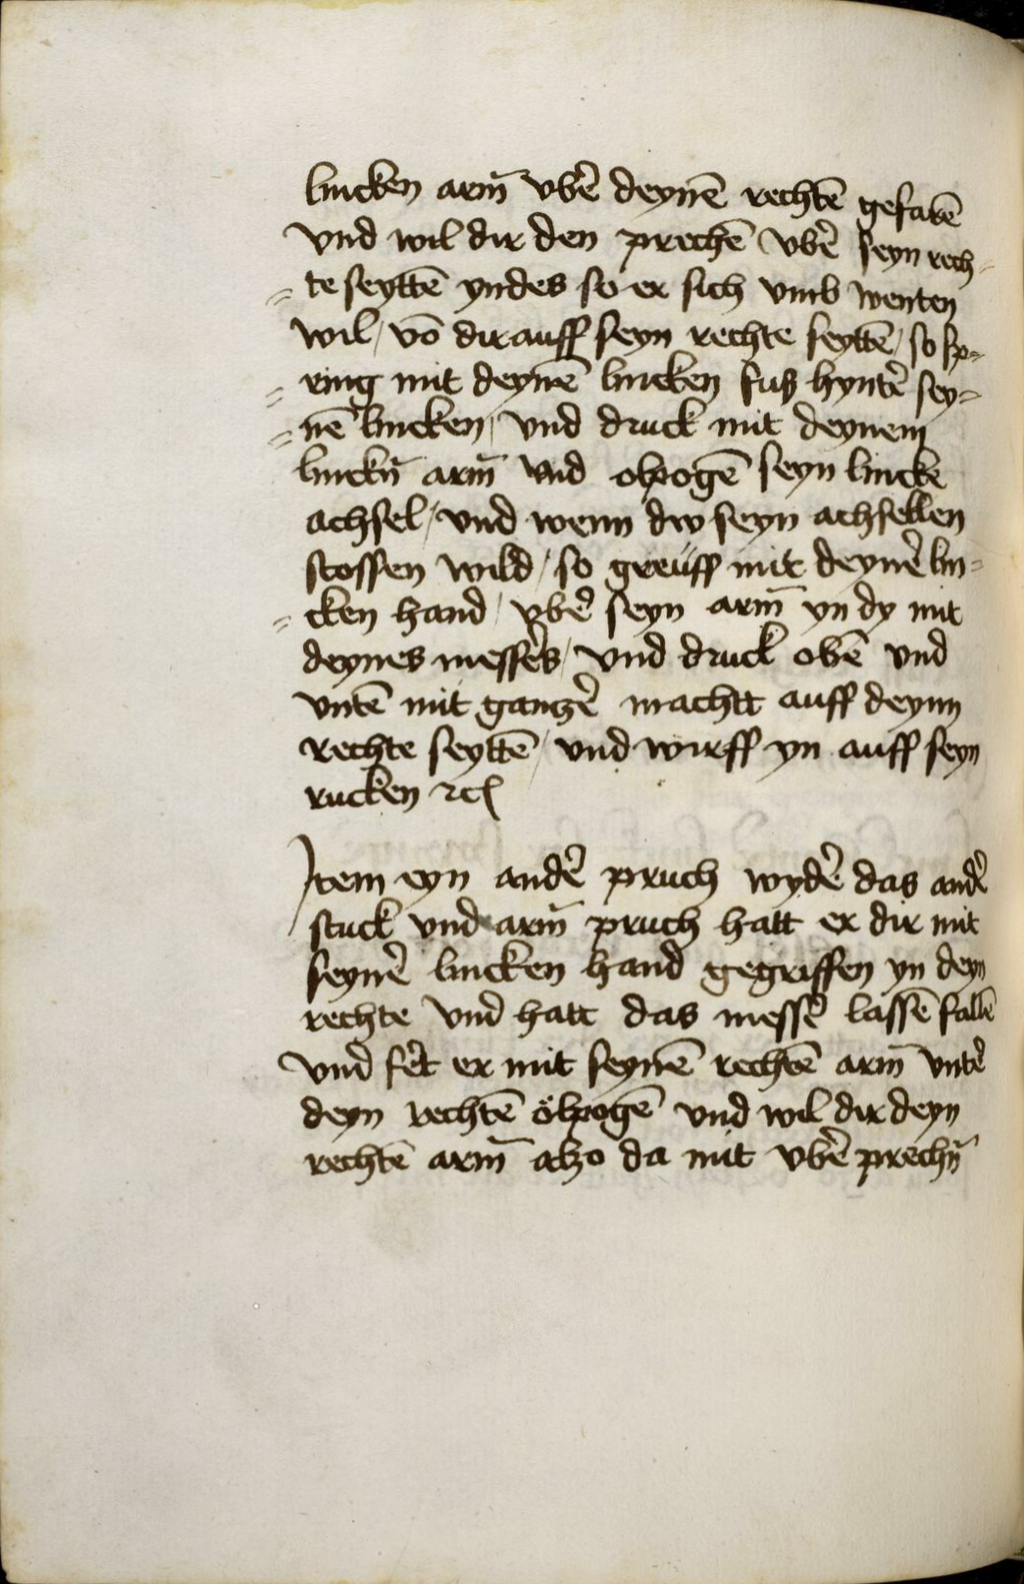 lincken arm̄ vbe᷑ deynē rechtē gefarē
vnd wil dir den prechē vbe᷑ seyn rech=
=te seyttē yndes so er sich vmb wenten
wil / vō dir auff seyn rechte seyttē / so sp=
=ring mit deynē lincken fus hynte᷑ sey=
=nē lincken / vnd druck mit deynem
linckn̄ arm̄ vnd olpogē seyn lincke
achsel / vnd wenn dw seyn achsellen
stossen wild / so greüff mit deyne᷑ lin=
=cken hand / vbe᷑ seyn arm̄ yn dy mit
deynes messe᷑s / vnd druck obē vnd
vntē mit gancze᷑ machtt auff deynn
rechte seyttē / vnd würff yn auff seyn
rucken ⁊cͨ
Item eyn ande᷑ pruch wyde᷑ das ande᷑
stuck vnd arm̄ pruch hatt er dir mit
seyne᷑ lincken hand gegriffen yn deyn
rechte vnd hatt das messe᷑ lassē fallē
vnd fe᷑t er mit seynē rechtē arm̄ vnte᷑
deyn rechtē ölpogē vnd wil dir deyn
rechtē arm̄ alzo da mit vbe᷑ prechn̄